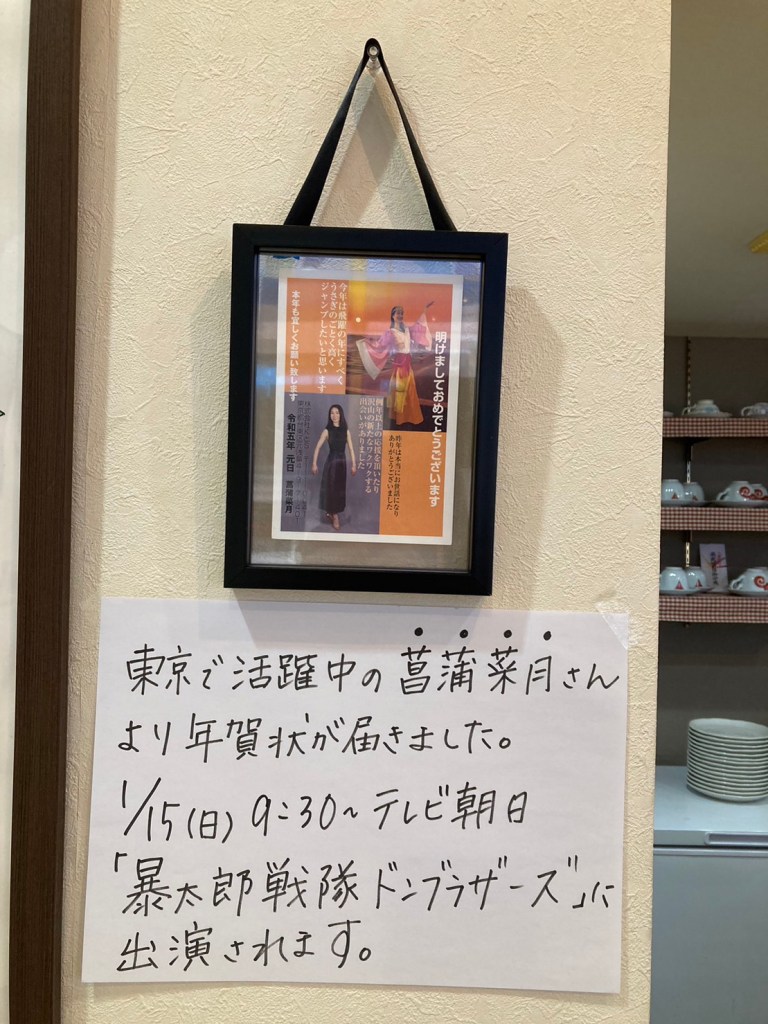 明けましておめでとうございます
昨年は本当にお世話になり
ありがとうございました
今年は飛躍の年にすべく
うさぎのごとく高く
ジャンプしたいと思います
本年も宜しくお願い致します
沢山の新たなワクワクする
出会いがありました
令和五年 元日 菖蒲菜月
東京で活躍中の菖蒲菜月さん
より年賀状が届きました。
1/15(日) 9:30~テレビ朝日
「暴太郎戦隊ドンブラザーズ」に
出演されます。